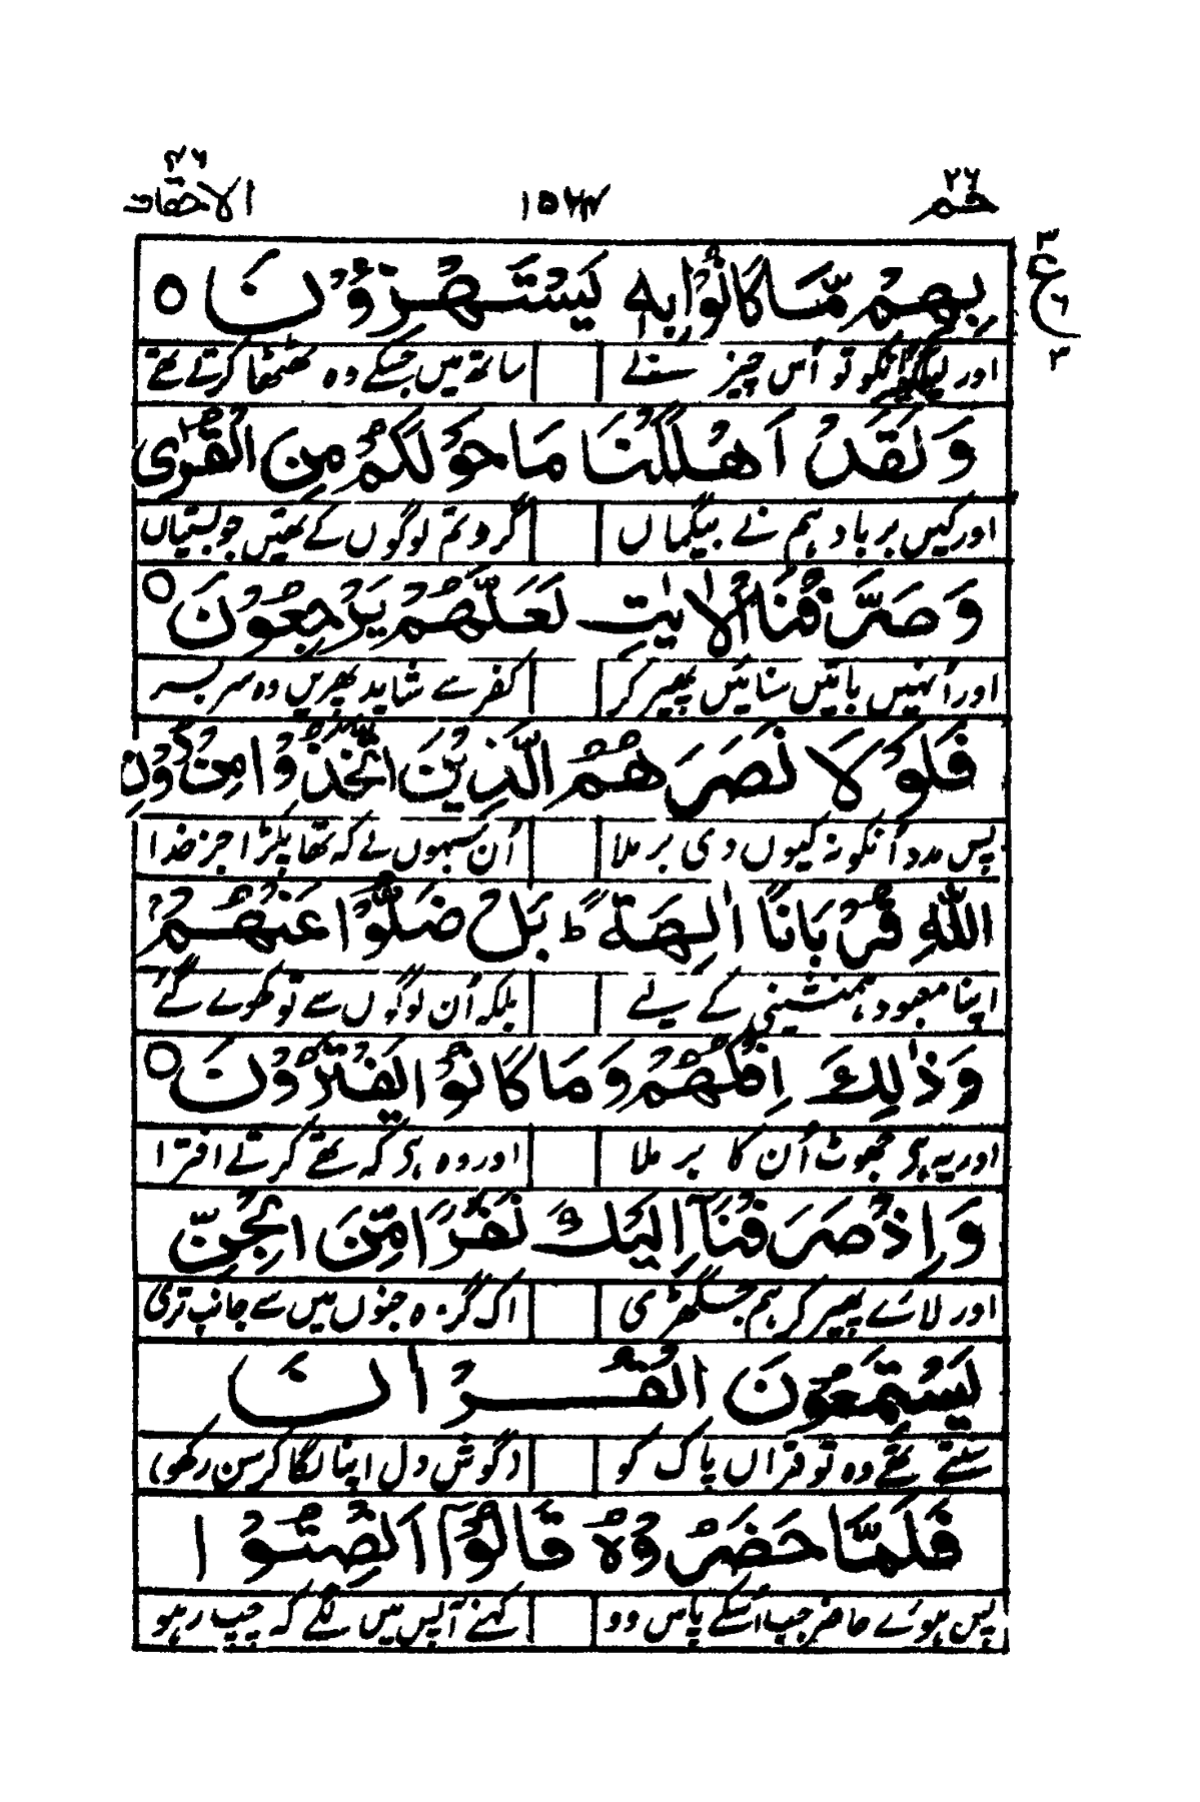 حٰمٓ ٢٦ ١٥٢٧ الاحقاف ٤٦
٣ ع ٦ ٣
بِهِمْ مَّا كَانُوْا بِهٖ يَسْتَهْزِءُوْنَ ۝
اور لیا اُنکو تو اُس چیز سنے ساتھ میں جسکے وہ ٹھٹھا کرتے تھے
وَلَقَدْ اَهْلَكْنَا مَا حَوْلَكُمْ مِنَ الْقُرٰى
اور کیں برباد ہم نے بیگماں گرد تم لوگوں کے تھیں جو بستیاں
وَصَرَّفْنَا الْاٰيٰتِ لَعَلَّهُمْ يَرْجِعُوْنَ ۝
اور اُنہیں باتیں سنائیں پھیر کر کفر سے شاید پھریں وہ سر بسر
فَلَوْلَا نَصَرَهُمُ الَّذِيْنَ اتَّخَذُوْا مِنْ دُوْنِ
پس مدد اُنکو نہ کیوں دی بر ملا اُن سبہوں نے کہ تھا پکڑا جز خدا
اللّٰهِ قُرْبَانًا اٰلِهَةً ؕ بَلْ ضَلُّوْا عَنْهُمْ
اپنا معبود ہمنشینی کے لیے بلکہ اُن لوگوں سے تو کھوے گئے
وَذٰلِكَ اِفْكُهُمْ وَمَا كَانُوْا يَفْتَرُوْنَ ۝
اور یہ ہی جھوٹ اُن کا بر ملا اور وہ ہی کہ تھے کرتے افترا
وَاِذْ صَرَفْنَآ اِلَيْكَ نَفَرًا مِّنَ الْجِنِّ
اور لائے پھیر کر ہم جس گھڑی اک گروہ جنوں میں سے جانب تری
يَسْتَمِعُوْنَ الْقُرْاٰنَ
سنتے تھے وہ تو قراں پاک کو (گوش دل اپنا لگا کر سن رکھو)
فَلَمَّا حَضَرُوْهُ قَالُوْٓا اَنْصِتُوْا
پس ہوئے حاضر جب اُسکے پاس وو کہنے آپس میں لگے کہ چپ رہو